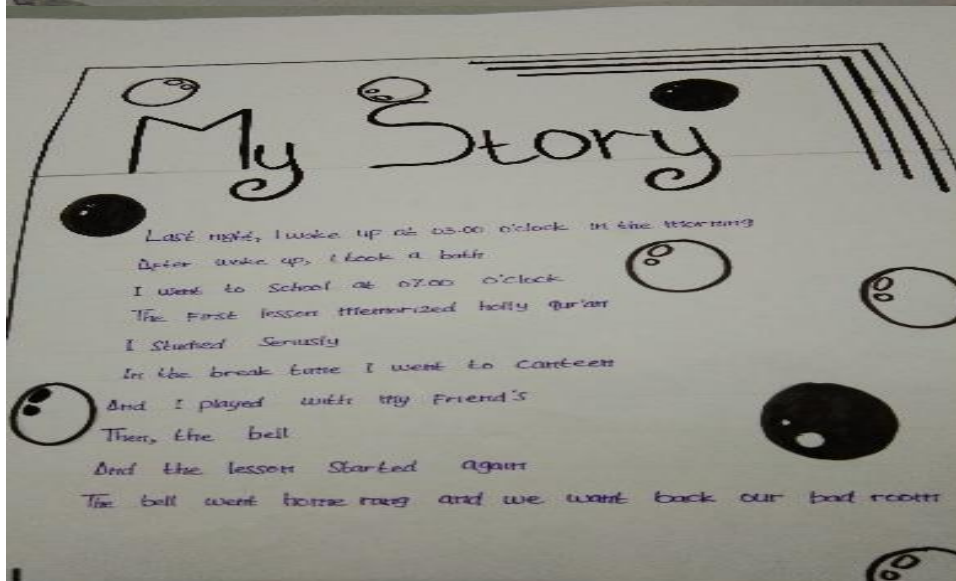 My Story
Last night, I woke up at 03.00 o'clock in the morning
After woke up, I took a bath
I went to School at 07.00 o'clock
The First lesson memorized holly Qur'an
I Studied Seriusly
In the break time I went to canteen
And I played with my Friend's
Then, the bell
And the lesson Started again
The bell went home rang and we want back our bad room